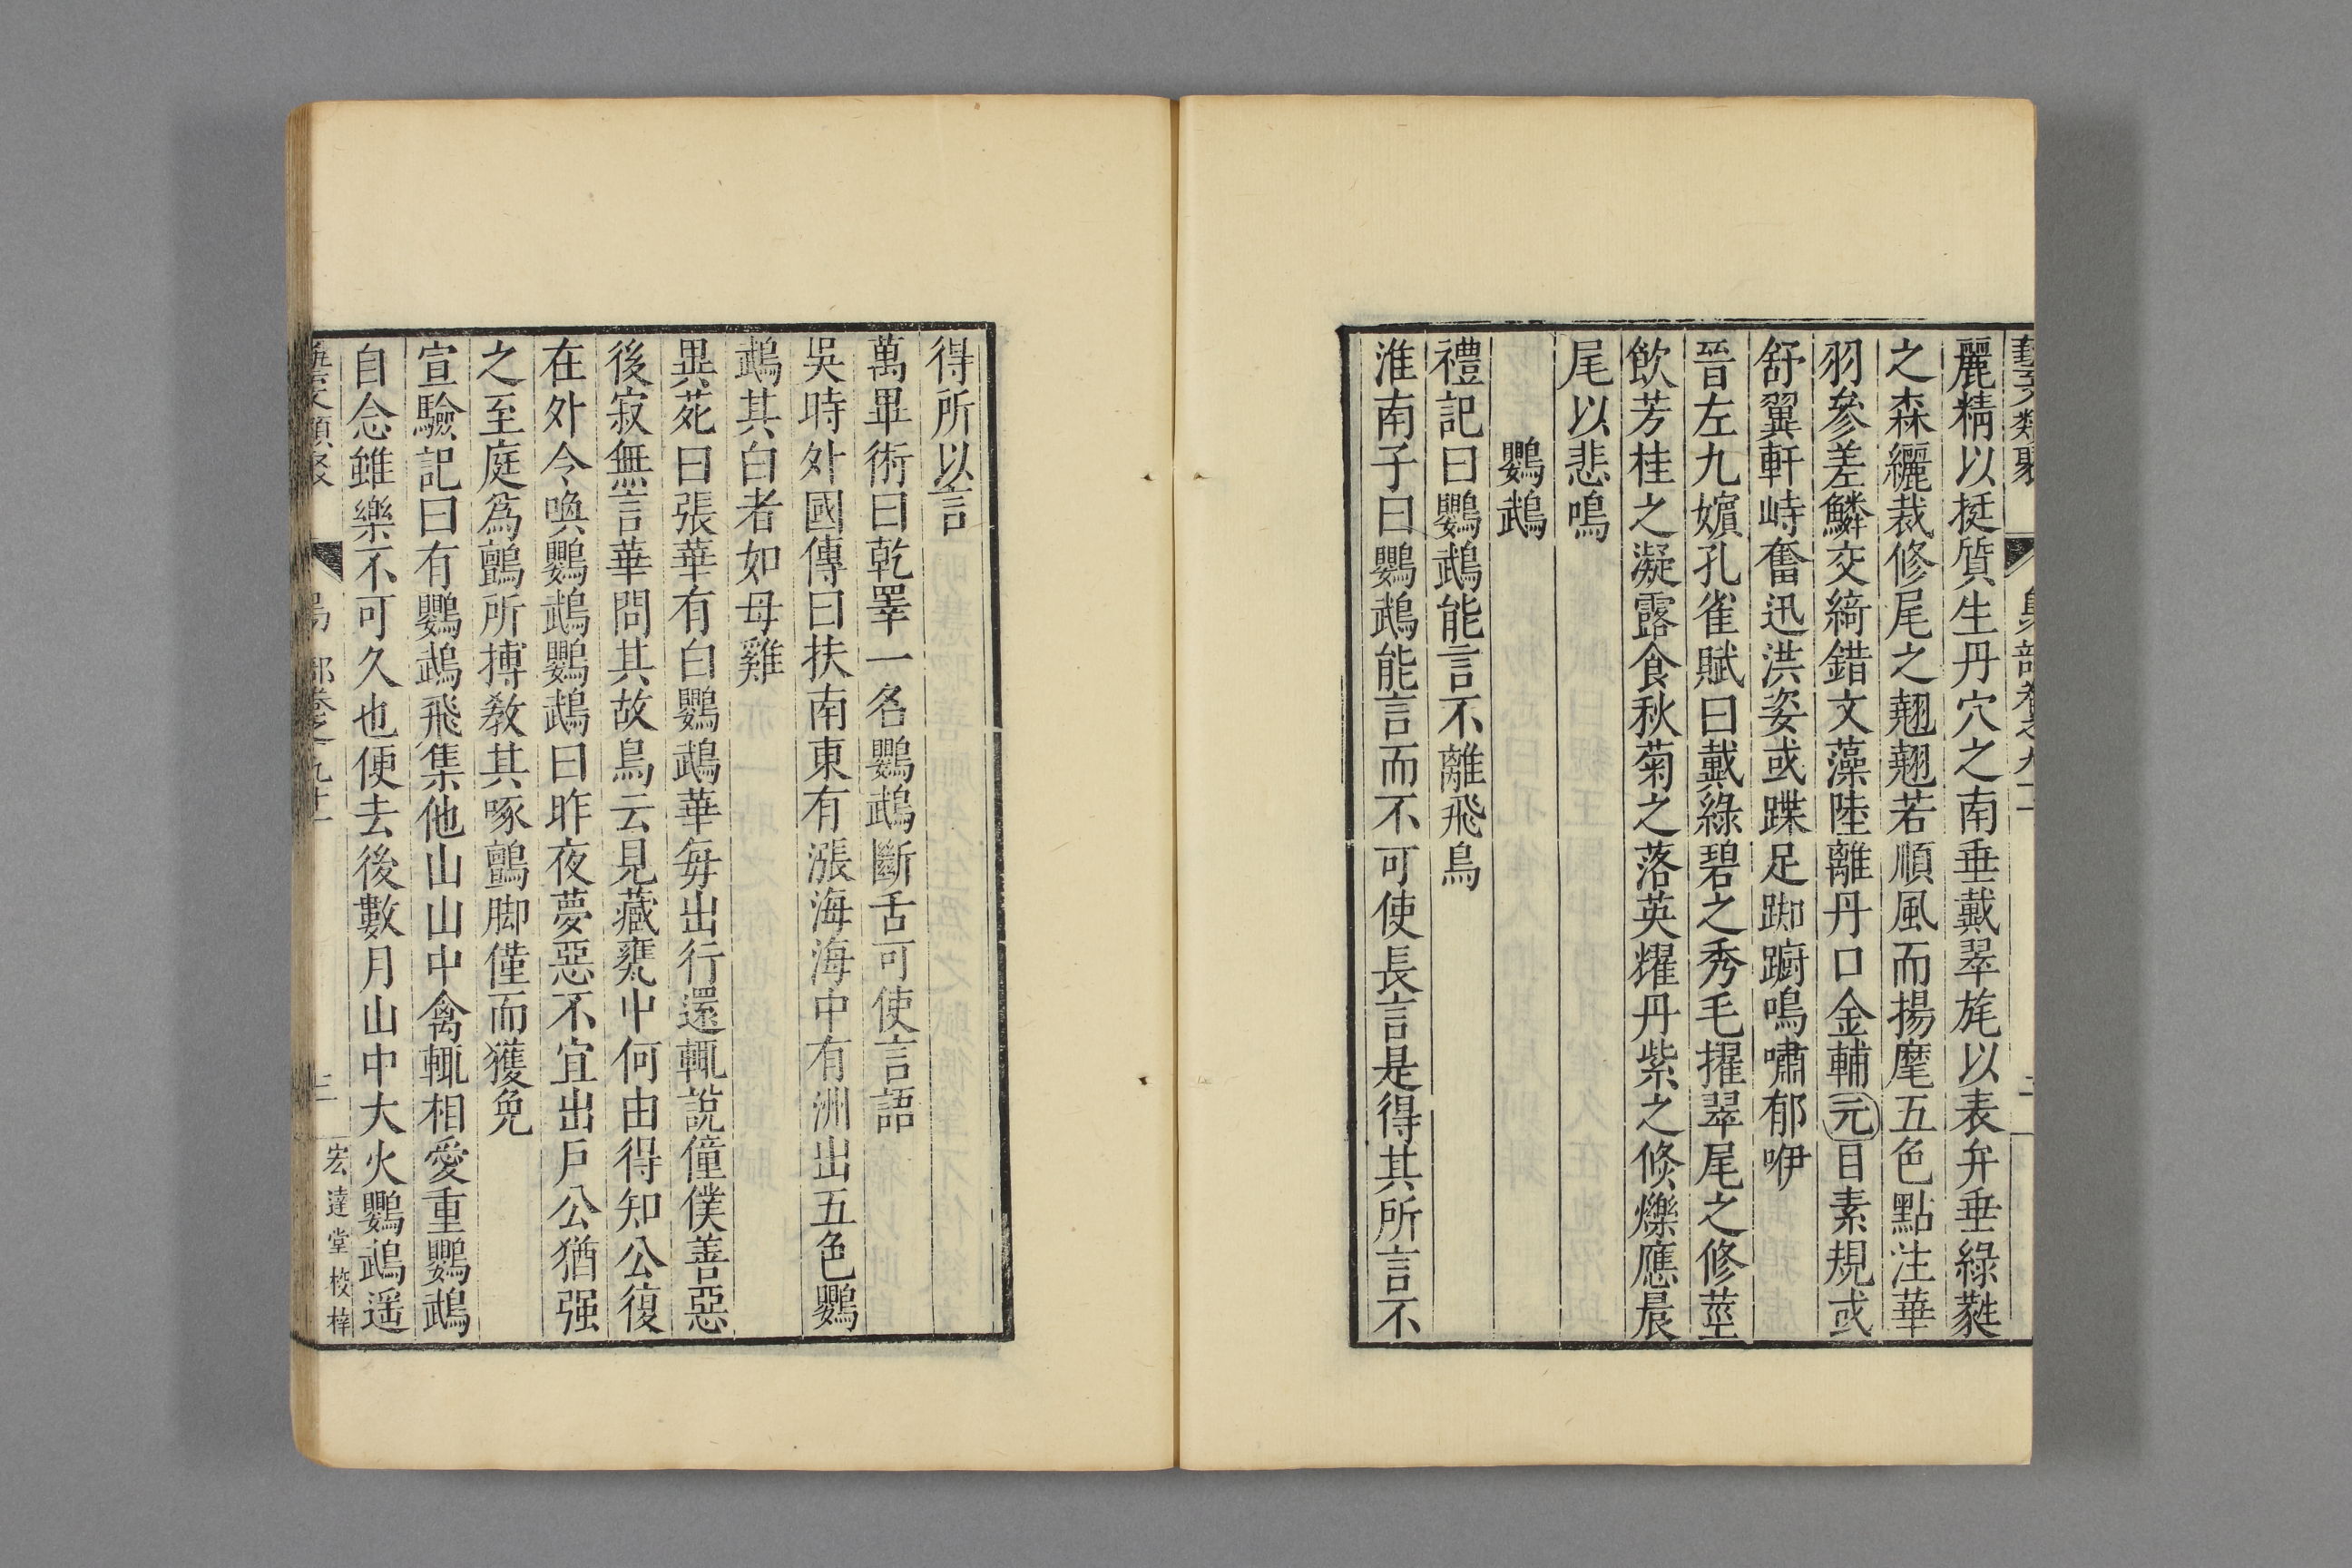 藝文類聚 鳥部卷之九十一
麗精以挺質生丹穴之南垂戴翠旄以表弁垂綠蕤
之森纚裁修尾之翹翹若順風而揚麾五色點注華
羽參差鱗交綺錯文藻陸離丹口金輔元目素規或
舒翼軒峙奮迅洪姿或蹀足踟躕鳴嘯郁咿
晉左九嬪孔雀賦曰戴綠碧之秀毛擢翠尾之修莖
飲芳桂之凝露食秋菊之落英耀丹紫之倏爍應晨
尾以悲鳴
鸚鵡
禮記曰鸚鵡能言不離飛鳥
淮南子曰鸚鵡能言而不可使長言是得其所言不
得所以言
萬畢術曰乾睪一名鸚鵡斷舌可使言語
吳時外國傳曰扶南東有漲海海中有洲出五色鸚
鵡其白者如母雞
異苑曰張華有白鸚鵡華每出行還輒說僮僕善惡
後寂無言華問其故鳥云見藏甕中何由得知公復
在外令喚鸚鵡鸚鵡曰昨夜夢惡不宜出戶公猶强
之至庭為鸇所搏敎其啄鸇脚僅而獲免
宣驗記曰有鸚鵡飛集他山山中禽輒相愛重鸚鵡
自念雖樂不可久也便去後數月山中大火鸚鵡遥
藝文類聚 鳥部卷之九十一 宏達堂校梓